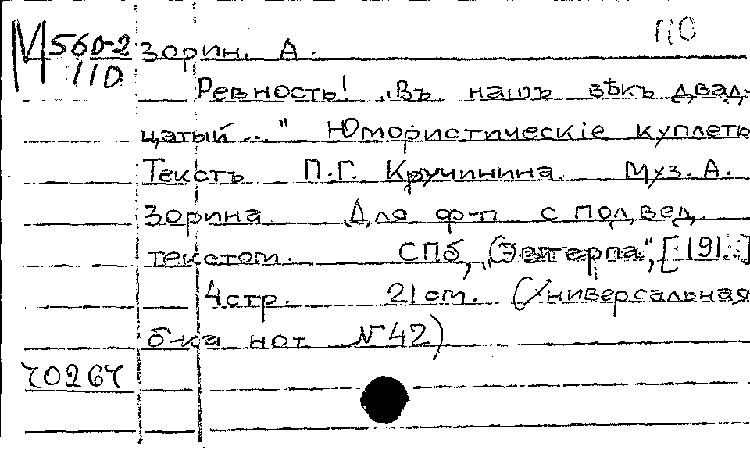 110
М 560-2 Зорин. А.
110
Ревность! „Въ нашъ вѣкъ двад-
цатый..." Юмористическіе куплеты
Текстъ П.Г. Кручинина. Муз. А.
Зорина. Для ф-п с подвед.
текстом. СПб, „Эвтерпа", [191.]
4 стр. 21 cm. (Универсальная
б-ка нот № 42)
70267